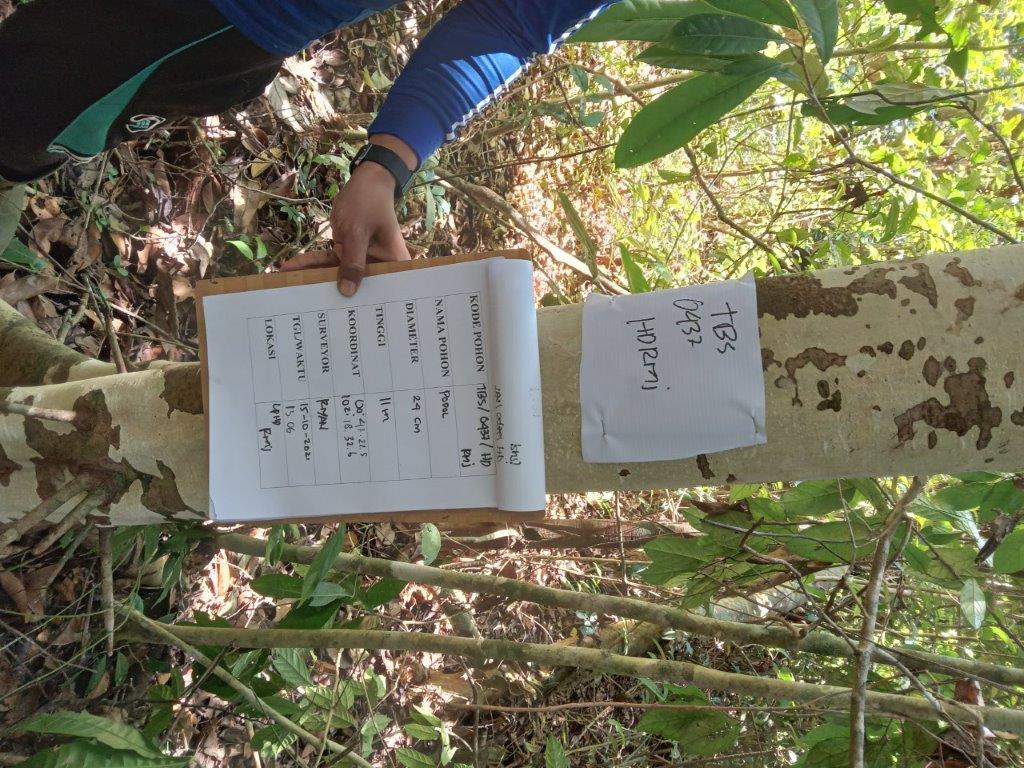 TBS
0437
HDRMj
KODE POHON TBS/0437/HD
RMj
NAMA POHON POPOL
DIAMETER 24 cm
TINGGI 11 m
KOORDINAT 00°.47.22.5
102°.18.32.6
SURVEYOR RIYAN
TGL/WAKTU 15-10-2021
13.06
LOKASI LPHD
RMj